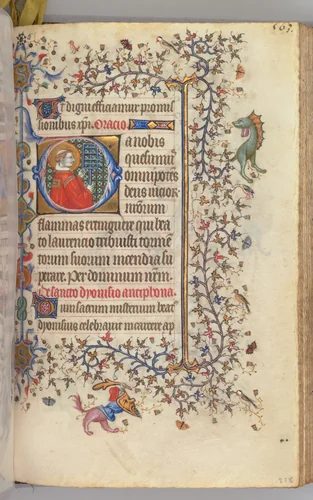 Ut digni efficiamur promis
sionibus xpi. Oracio
Da nobis
quesumus
omnipotens
deus vicior
flammas extinguere qui bea
to laurencio tribuisti torme
torum suorum incendia su
perare. Per dominum nrm.
De sancto dyonisio antiphona
beat
dyonisius celebravit in carcere ap